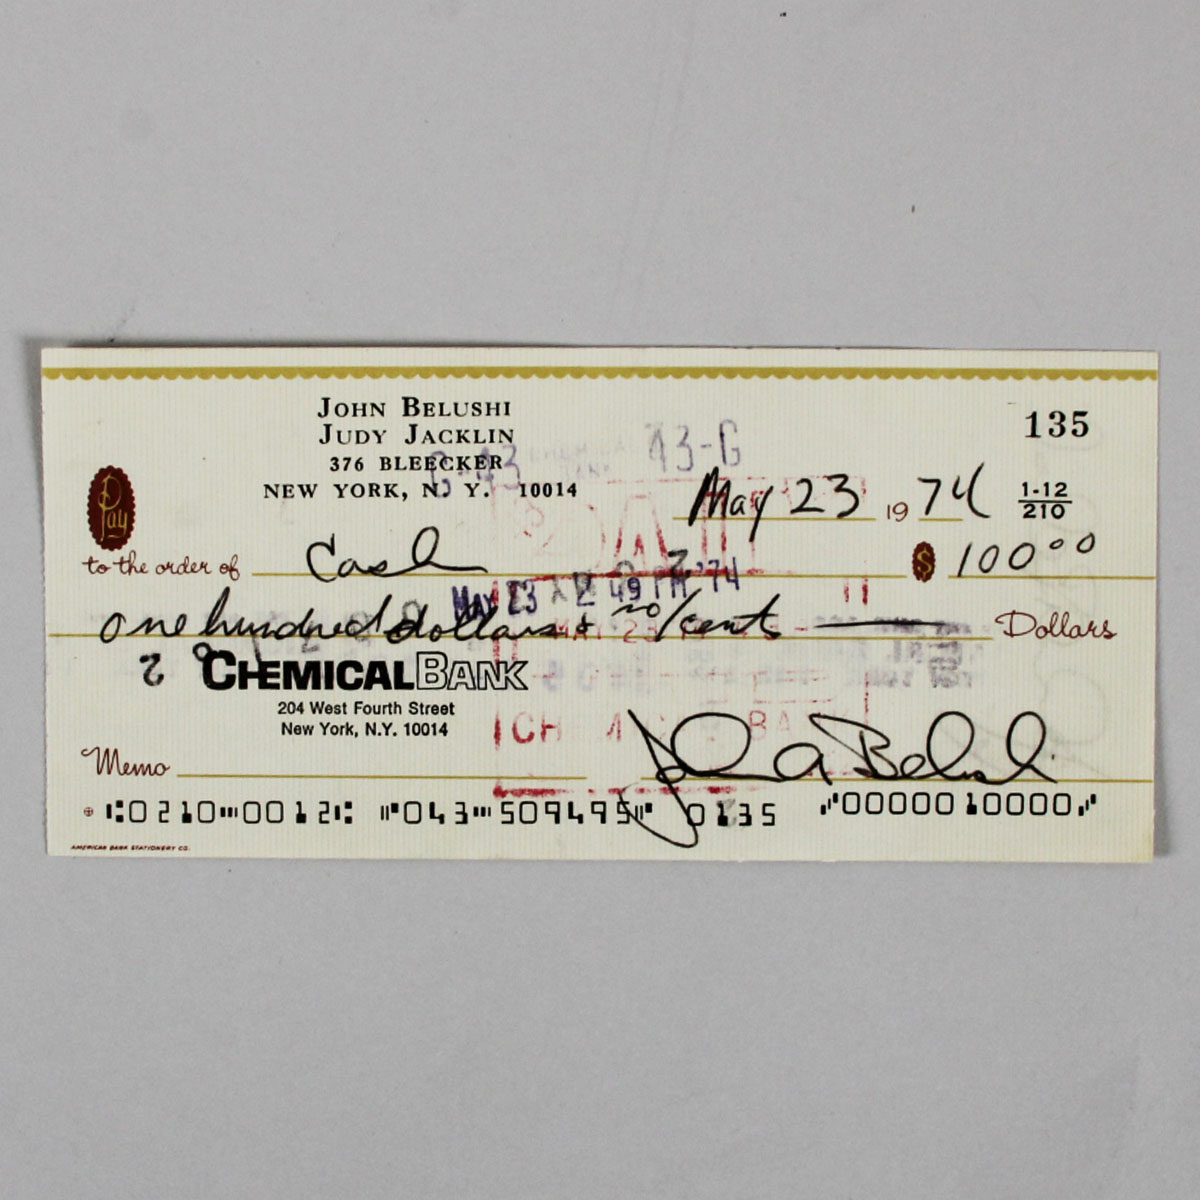 JOHN BELUSHI
JUDY JACKLIN
376 BLEECKER
NEW YORK, N. Y. 10014
135
C-43
43-G
May 23 1974
1-12
210
Pay
to the order of Cash $ 100.00
MAY 23 2 49 PM '74
one hundred dollars + no/cents Dollars
CHEMICAL BANK
204 West Fourth Street
New York, N.Y. 10014
PAID
MAY 23
CHEMICAL BANK
Memo
John A Belushi
⑆0210⑉0012⑆ ⑈043⑉509495⑈ 0135 ⑈0000010000⑈
AMERICAN BANK STATIONERY CO.